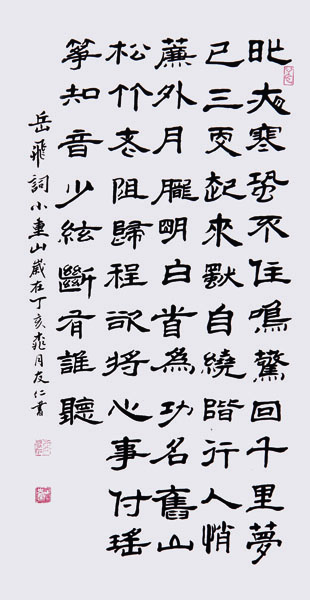 昨夜寒蛩不住鳴驚回千里夢
已三更起來獨自繞階行人悄
簾外月朧明白首為功名舊山
松竹老阻歸程欲將心事付瑤
箏知音少絃斷有誰聽
岳飛詞小重山歲在丁亥桃月友仁書